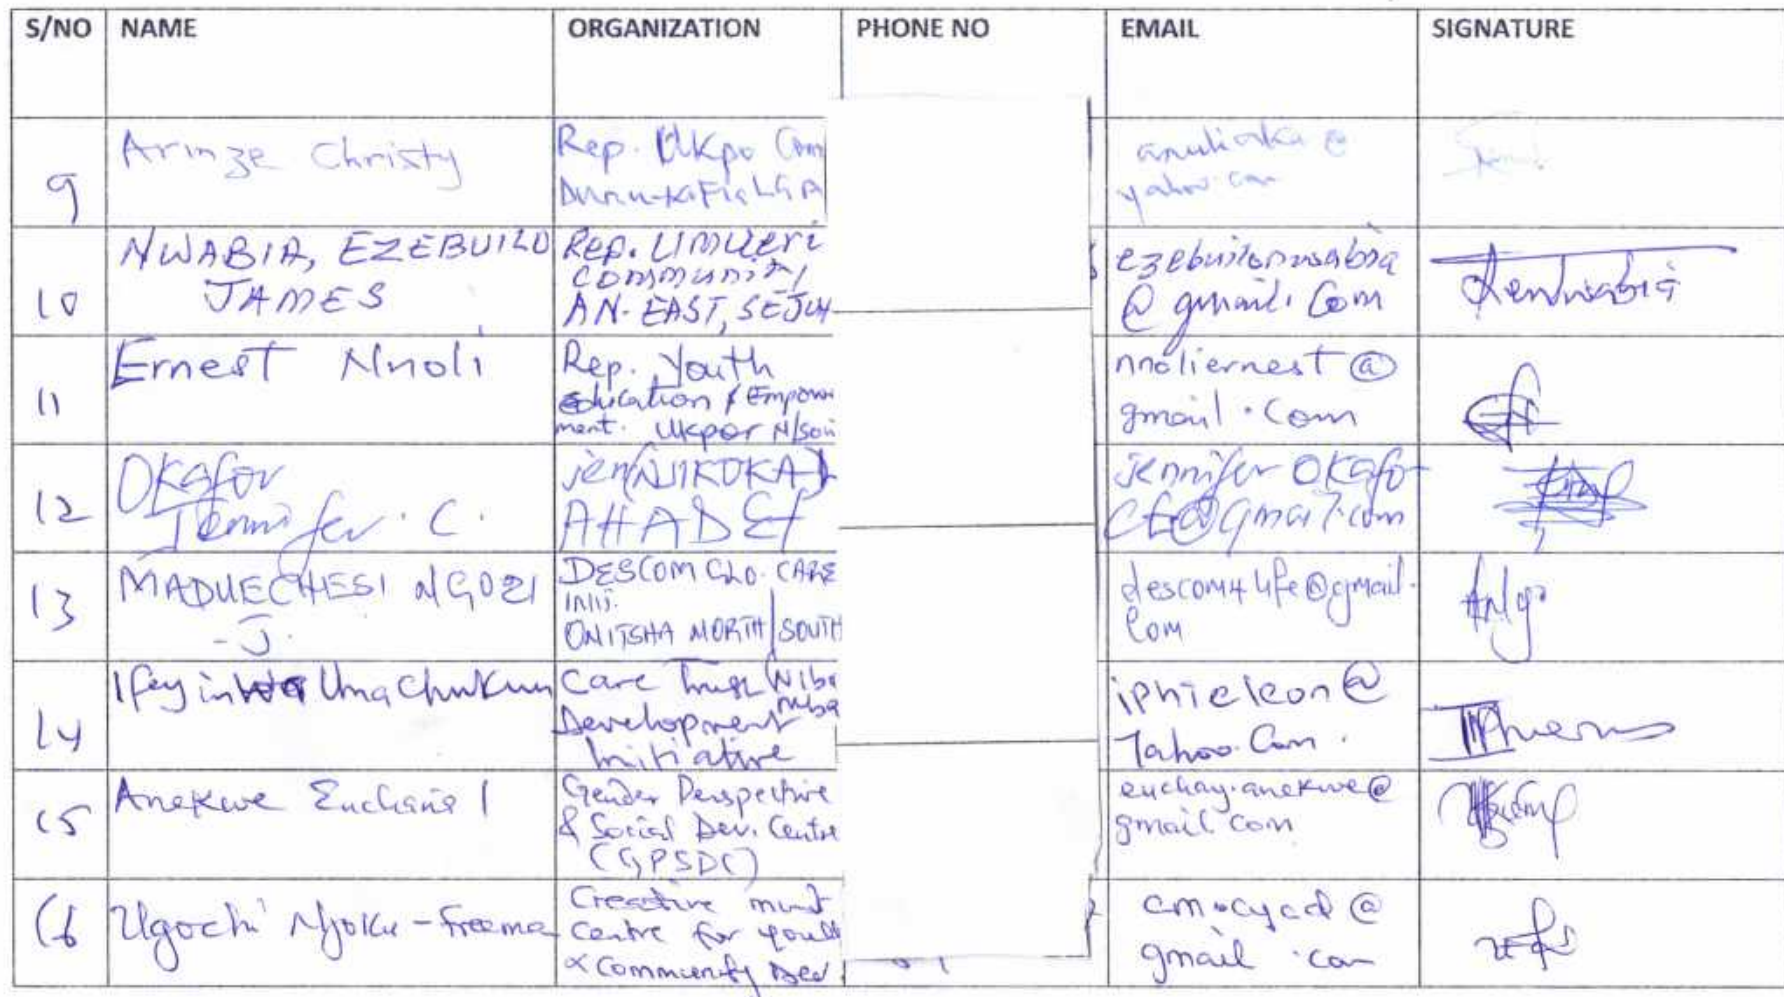 S/NO NAME ORGANIZATION PHONE NO EMAIL SIGNATURE
9 Arinze Christy
Rep. Ukpo Com
Dunu-kaFia LGA
yahoo.com
10 NWABIA, EZEBUILO
JAMES
Rep. UMUERI
COMMUNITY
AN-EAST,
ezebuilonwabia
@ gmail.com
11 Ernest Nnoli
Rep. Youth
education & Empower
ment. Ukpor N/sou
nnoliernest @
gmail.com
12 Okafor
Jennifer. C.
NJIKOKA
AHADEf
jennifer Okafo
@gmail.com
13 MADUECHESI NGOZI
- J.
DESCOM GLO. CARE
INIT.
ONITSHA NORTH/SOUTH
descom4life@gmail.
com
14 Ifeyinwa Umachukwu
Care Trust
Development
Initiative
iphieleon@
Yahoo.Com.
15 Anekwe Eucharia I
Gender Perspective
& Social Dev. Centre
(GPSDC)
euchay.anekwe@
gmail com
16 Ugochi Njoku-Freema
Creative mind
Centre for youth
& Community Dev
cmcycd @
gmail.com